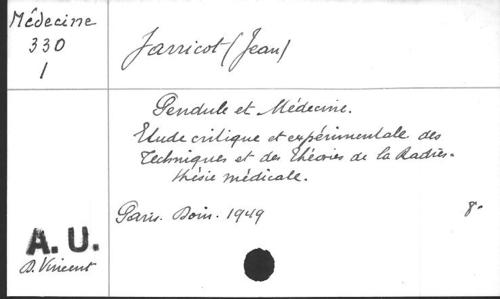 Médecine
330
1
Jarricot (Jean)
Pendule et Médecine.
Etude critique et expérimentale des
Techniques et des théories de la Radies-
thésie médicale.
Paris. Doin. 1949
8°
A. U.
D. Vincent